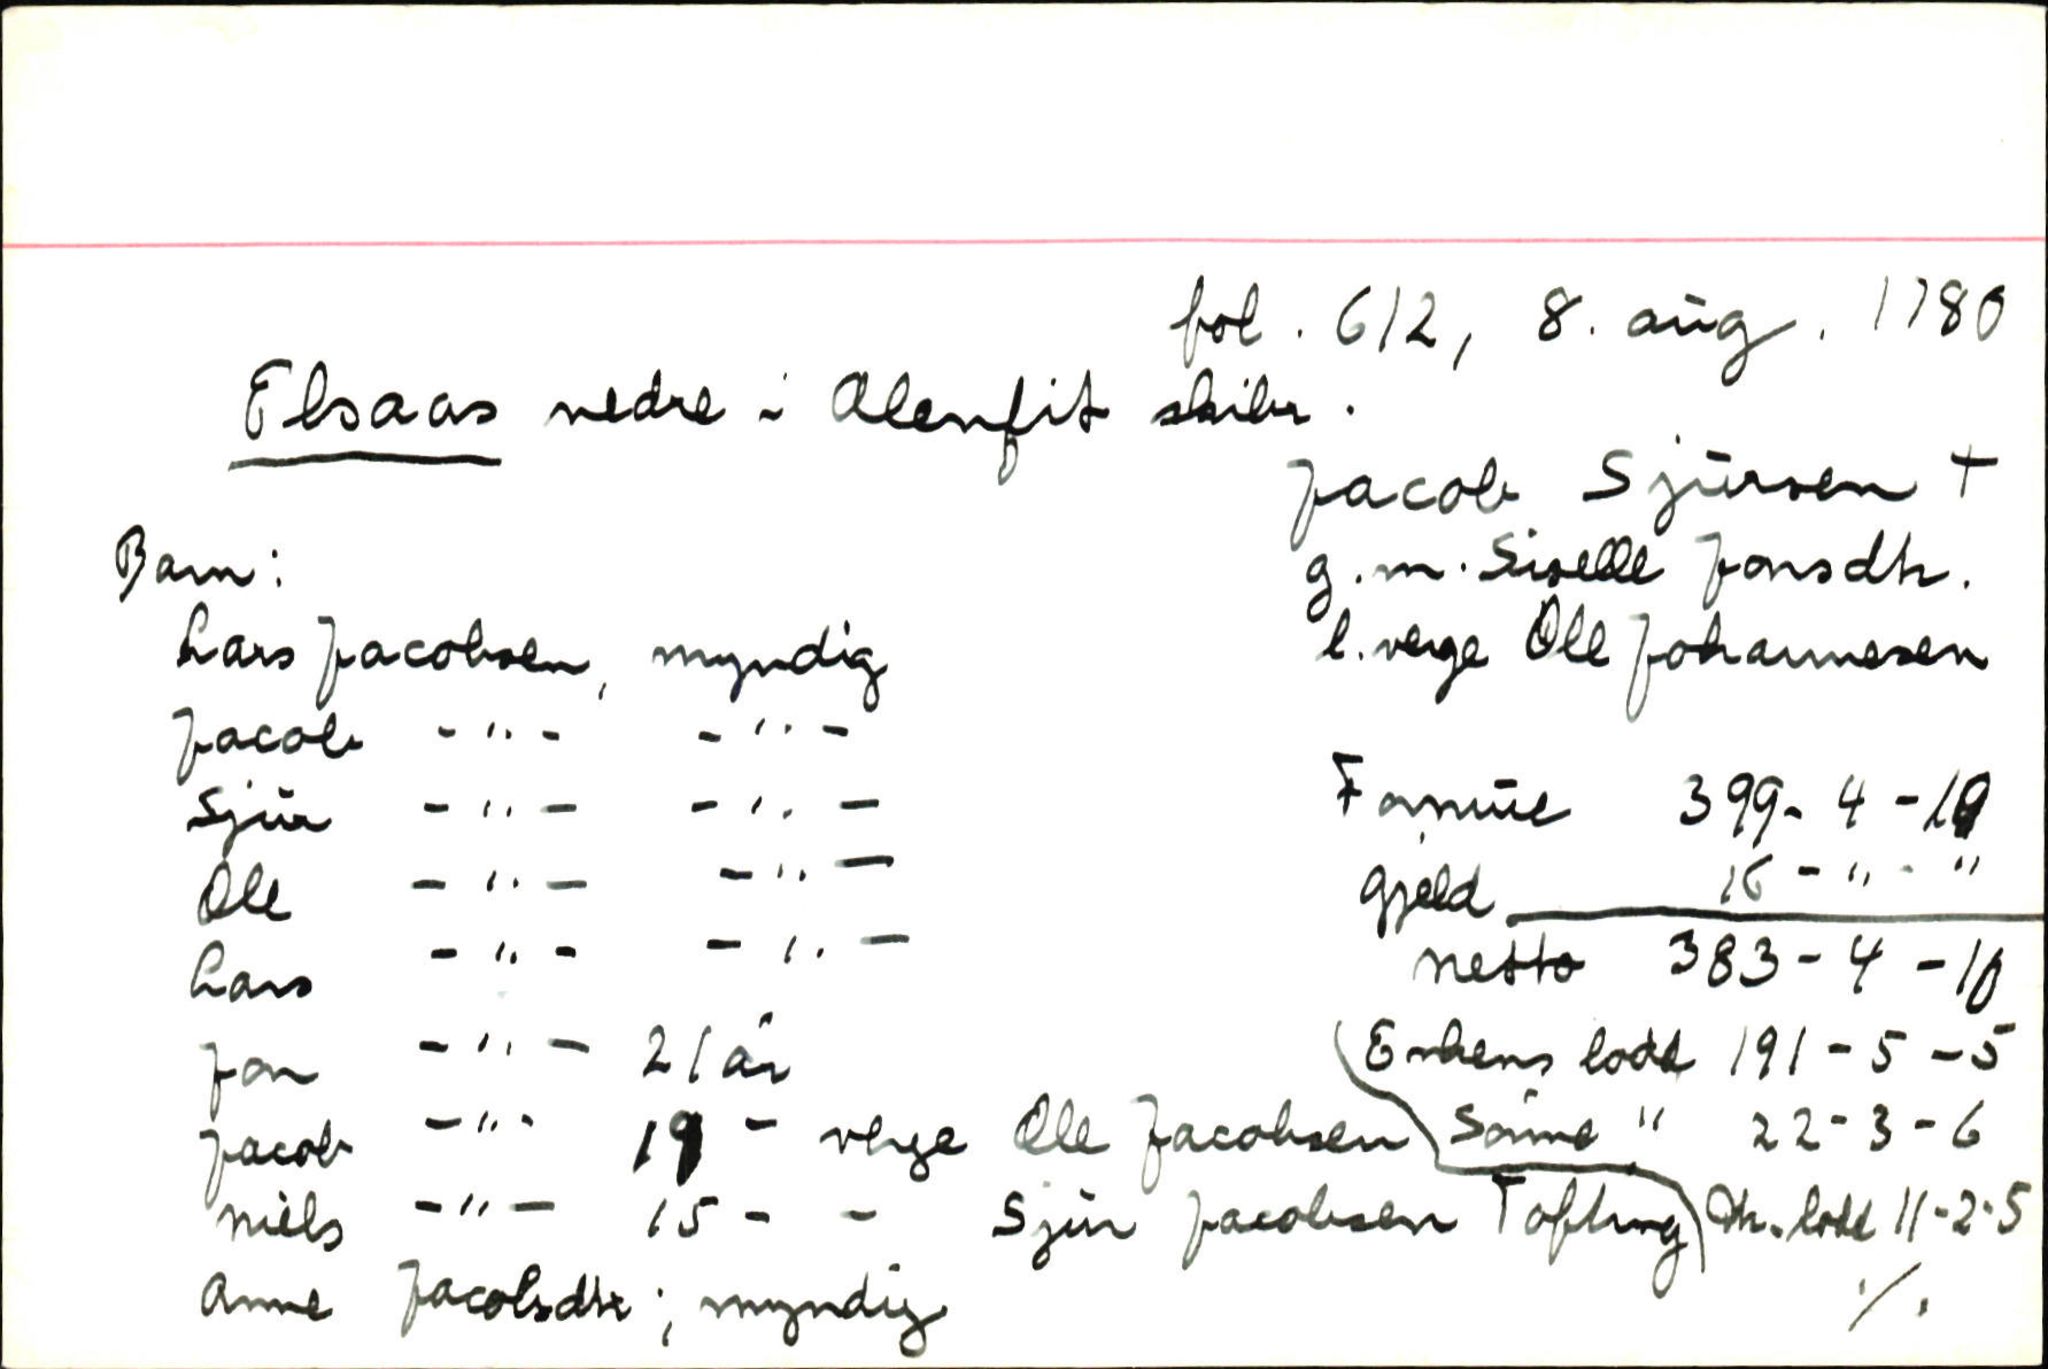 fol. 612, 8. aug. 1780
Elsaas nedre i Alenfit skibr.
Jacob Sjursen +
g.m. Siselle Jonsdtr.
l. verge Ole Johannesen
Barn:
Lars Jacobsen, myndig
Jacob -"- -"-
Sjur -"- -"-
Ole -"- -"-
Lars -"- -"-
Jon -"- 21 år
Jacob -"- 19 - verge Ole Jacobsen
Niels -"- 15 - - Sjur Jacobsen Tofting
Anne Jacobsdtr; myndig
Formue 399-4-10
Gjeld 16-"-"
netto 383-4-10
Enkens lodd 191-5-5
Sønne " 22-3-6
Dtr. lodd 11-2-5
./.